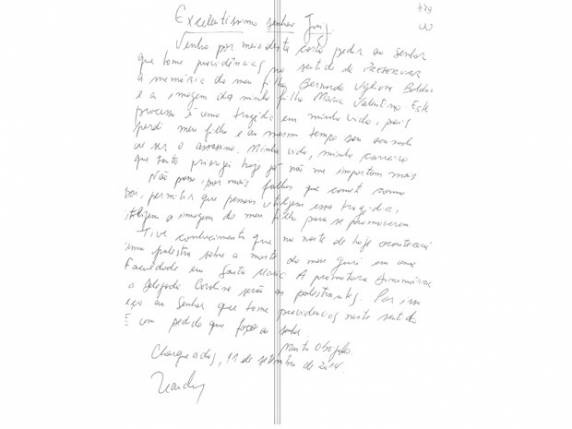 Excelentíssimo senhor Juiz
Venho por meio desta carta pedir ao senhor
que tome providências no sentido de preservar
a memória do meu filho Bernardo Uglione Boldrini
e a imagem da minha filha Maria Valentina. Este
processo é uma tragédia em minha vida, pois
perdi meu filho e ao mesmo tempo sou acusado
de ser o assassino. Minha vida, minha carreira
que tanto priorizei hoje já não me importam mais
Não posso, por mais falhas que cometi como
pai, permitir que pessoas utilizem essa tragédia,
utilizem a imagem do meu filho para se promoverem
Tive conhecimento que na noite de hoje ocorrerá
uma palestra sobre a morte do meu guri em uma
Faculdade em Santa Maria. A promotora
a delegada Caroline serão as palestrantes. Por isso
peço ao Senhor que tome providências neste sentido
É um pedido que faço ao senhor
Muito Obrigado.
Charqueadas, 11 de setembro de 2014